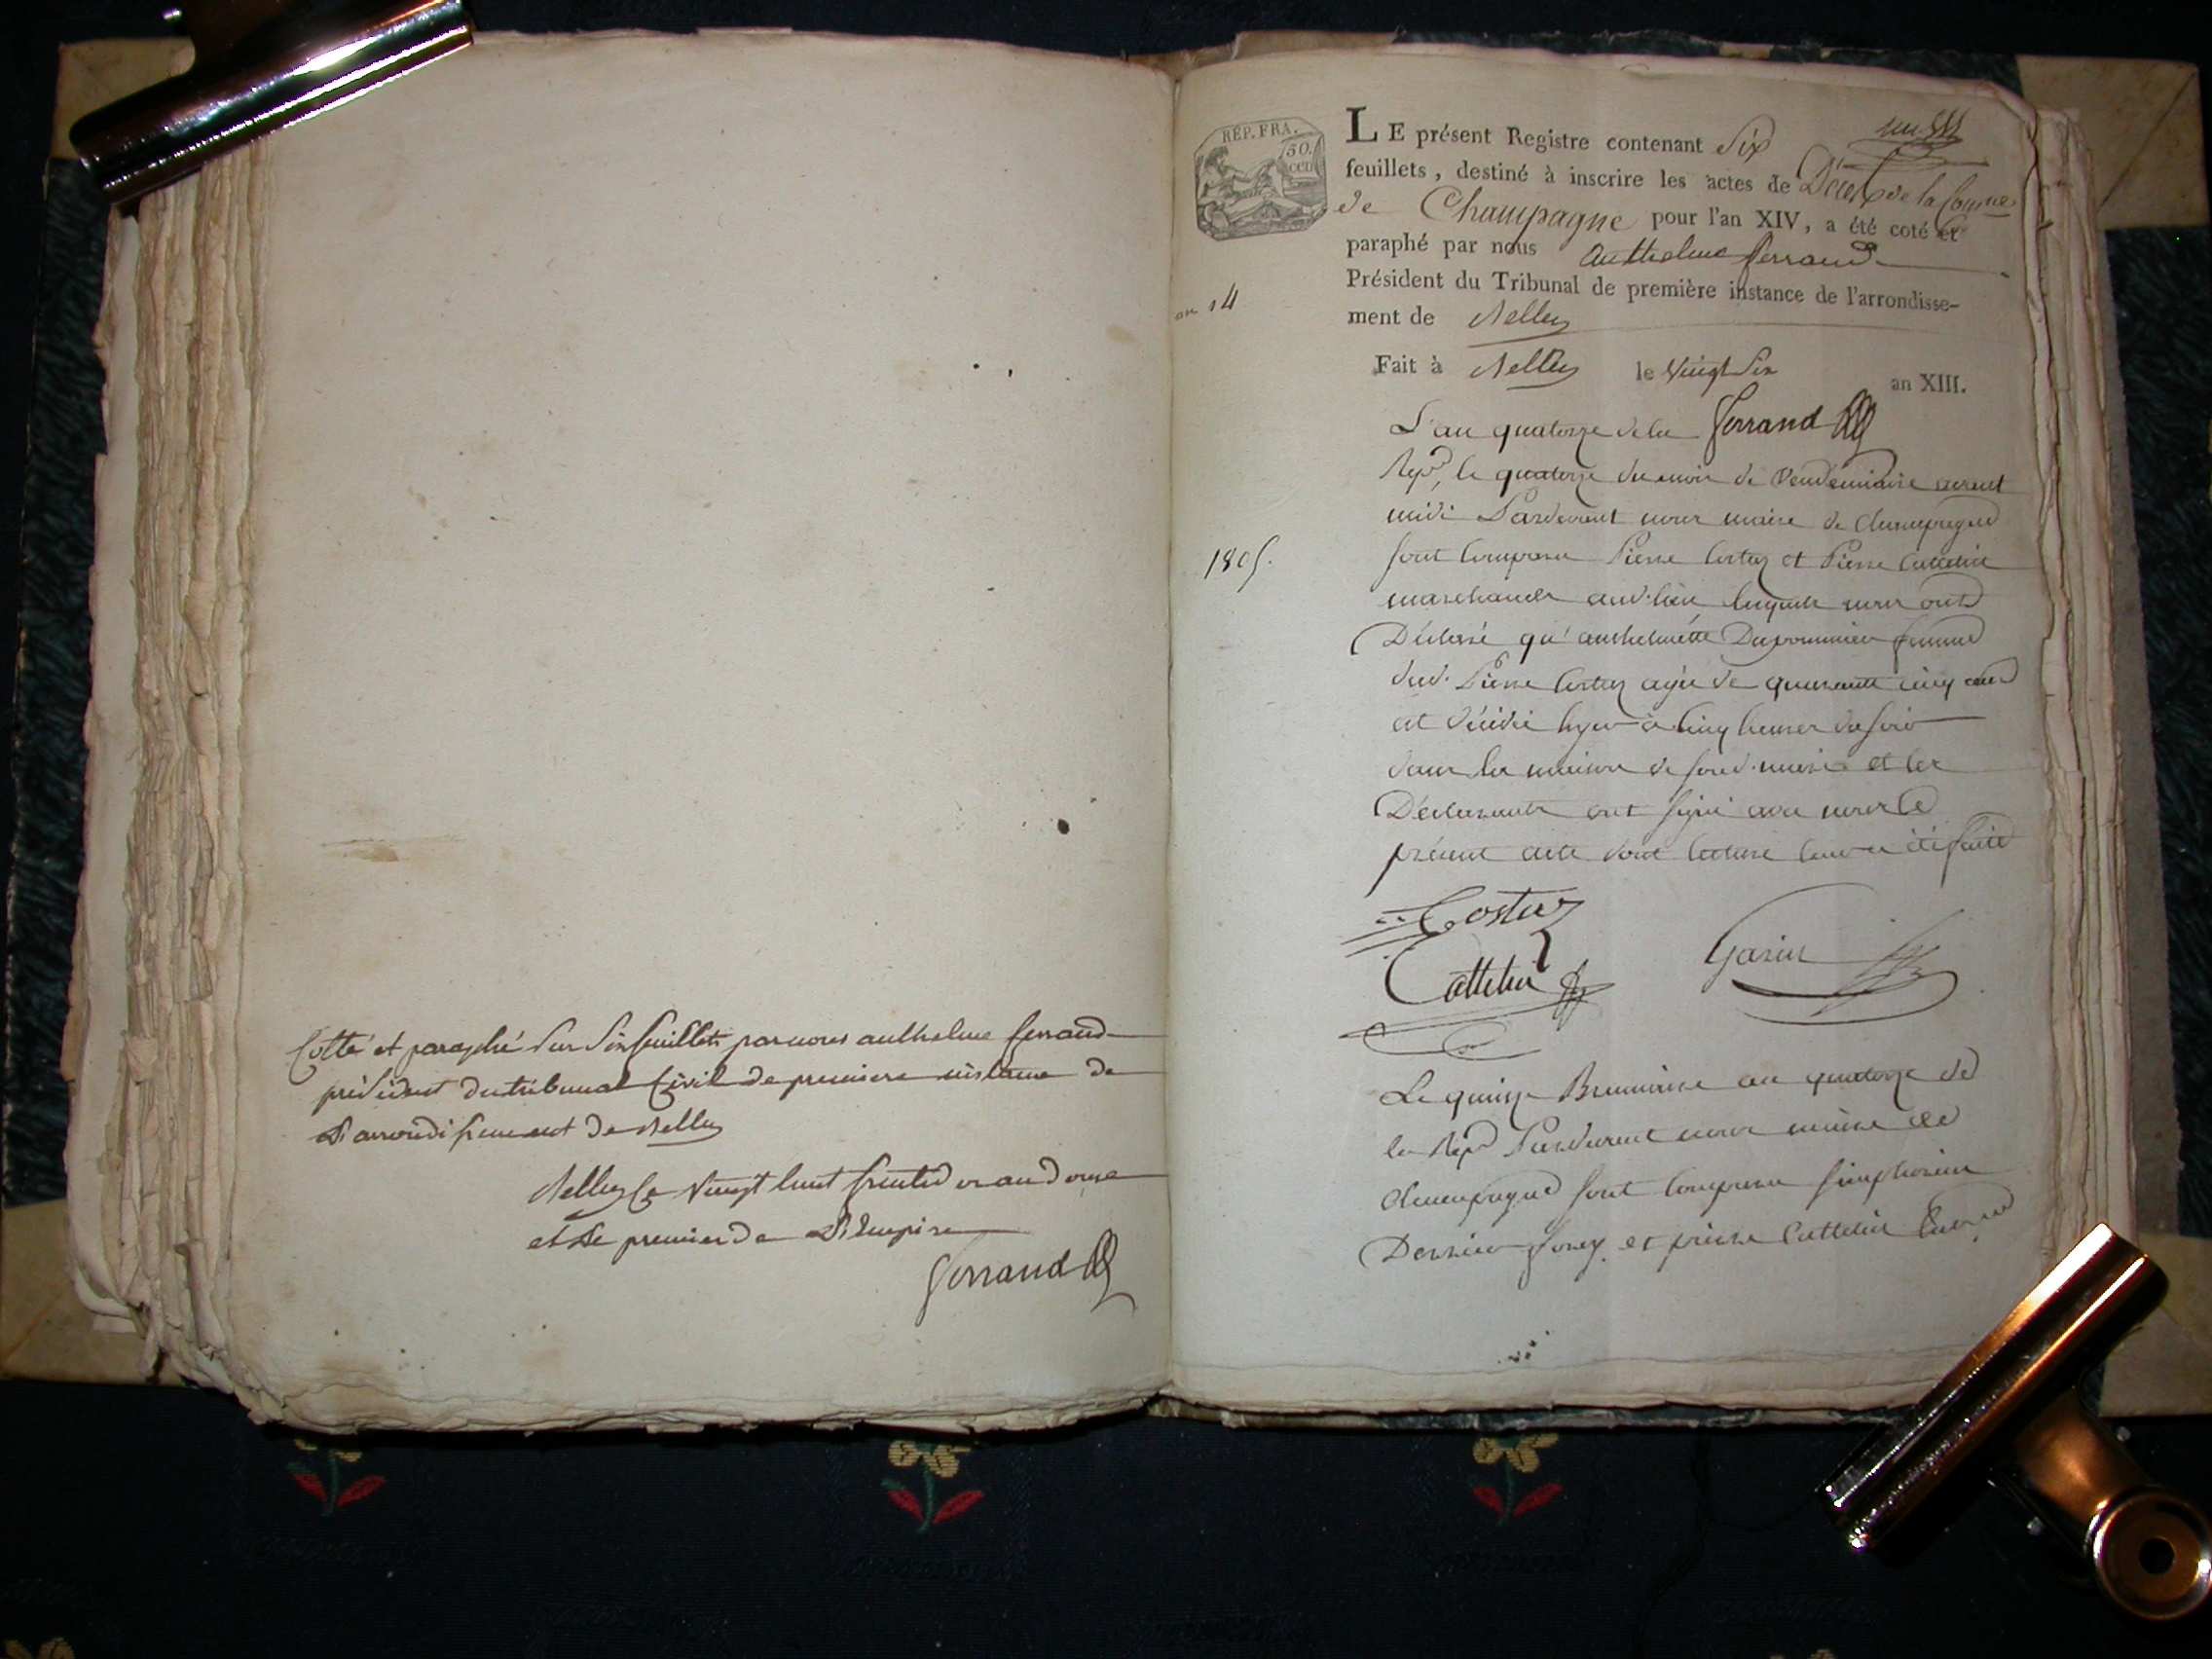 Cotté et paraphé sur six feuillets par nous anthelme ferrand
président du tribunal Civil de premiere instance de
L'arrondissement de Belley
Belley le vingt huit fructidor an douze
et Le premier de L'Empire
ferrand
REP. FRA.
50.
cen
an 14
1805.
LE présent Registre contenant Six
feuillets, destiné à inscrire les actes de Décès de la Comune
de Champagne pour l'an XIV, a été coté et
paraphé par nous anthelme ferrand
Président du Tribunal de première instance de l'arrondisse-
ment de Belley
Fait à Belley le vingt six an XIII.
L'an quatorze de la ferrand
Repe, le quatorze du mois de vendemiaire avant
midi Pardevant nous maire de champagne
sont comparu Pierre Costaz et Pierre Cattelin
marchands aud. lieu lesquels nous ont
Déclaré qu'anthelmette femme
dud. Pierre Costaz agée de quarante cinq ans
est décédée hyer à cinq heures du soir
dans la maison de sond. mari et les
Déclarants ont signé avec nous le
présent acte dont lecture leur a été faite
Costaz
Cattelin
Garin
Le quinze Brumaire an quatorze de
la Repe Pardevant nous maire de
champagne sont comparu simphorien
et pierre Cattelin